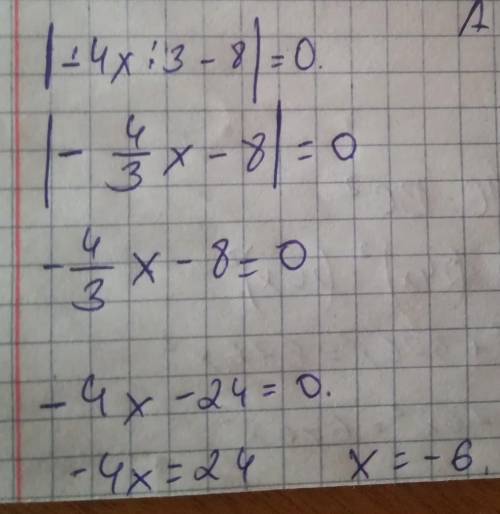 A
|-4x:3-8|=0.
|-4/3 x-8|=0
-4/3 x-8=0
-4x-24=0.
-4x=24 x=-6.